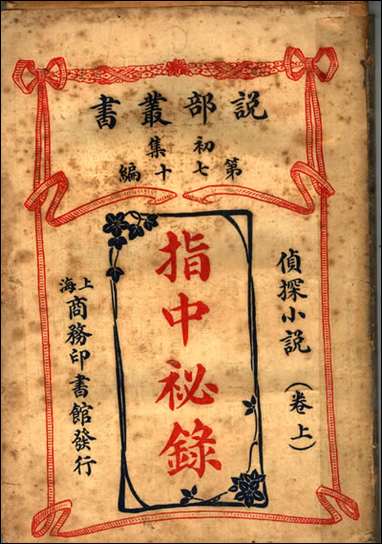 說部叢書
初集
第七十編
偵探小説（卷上）
指中祕錄
上海
商務印書館發行